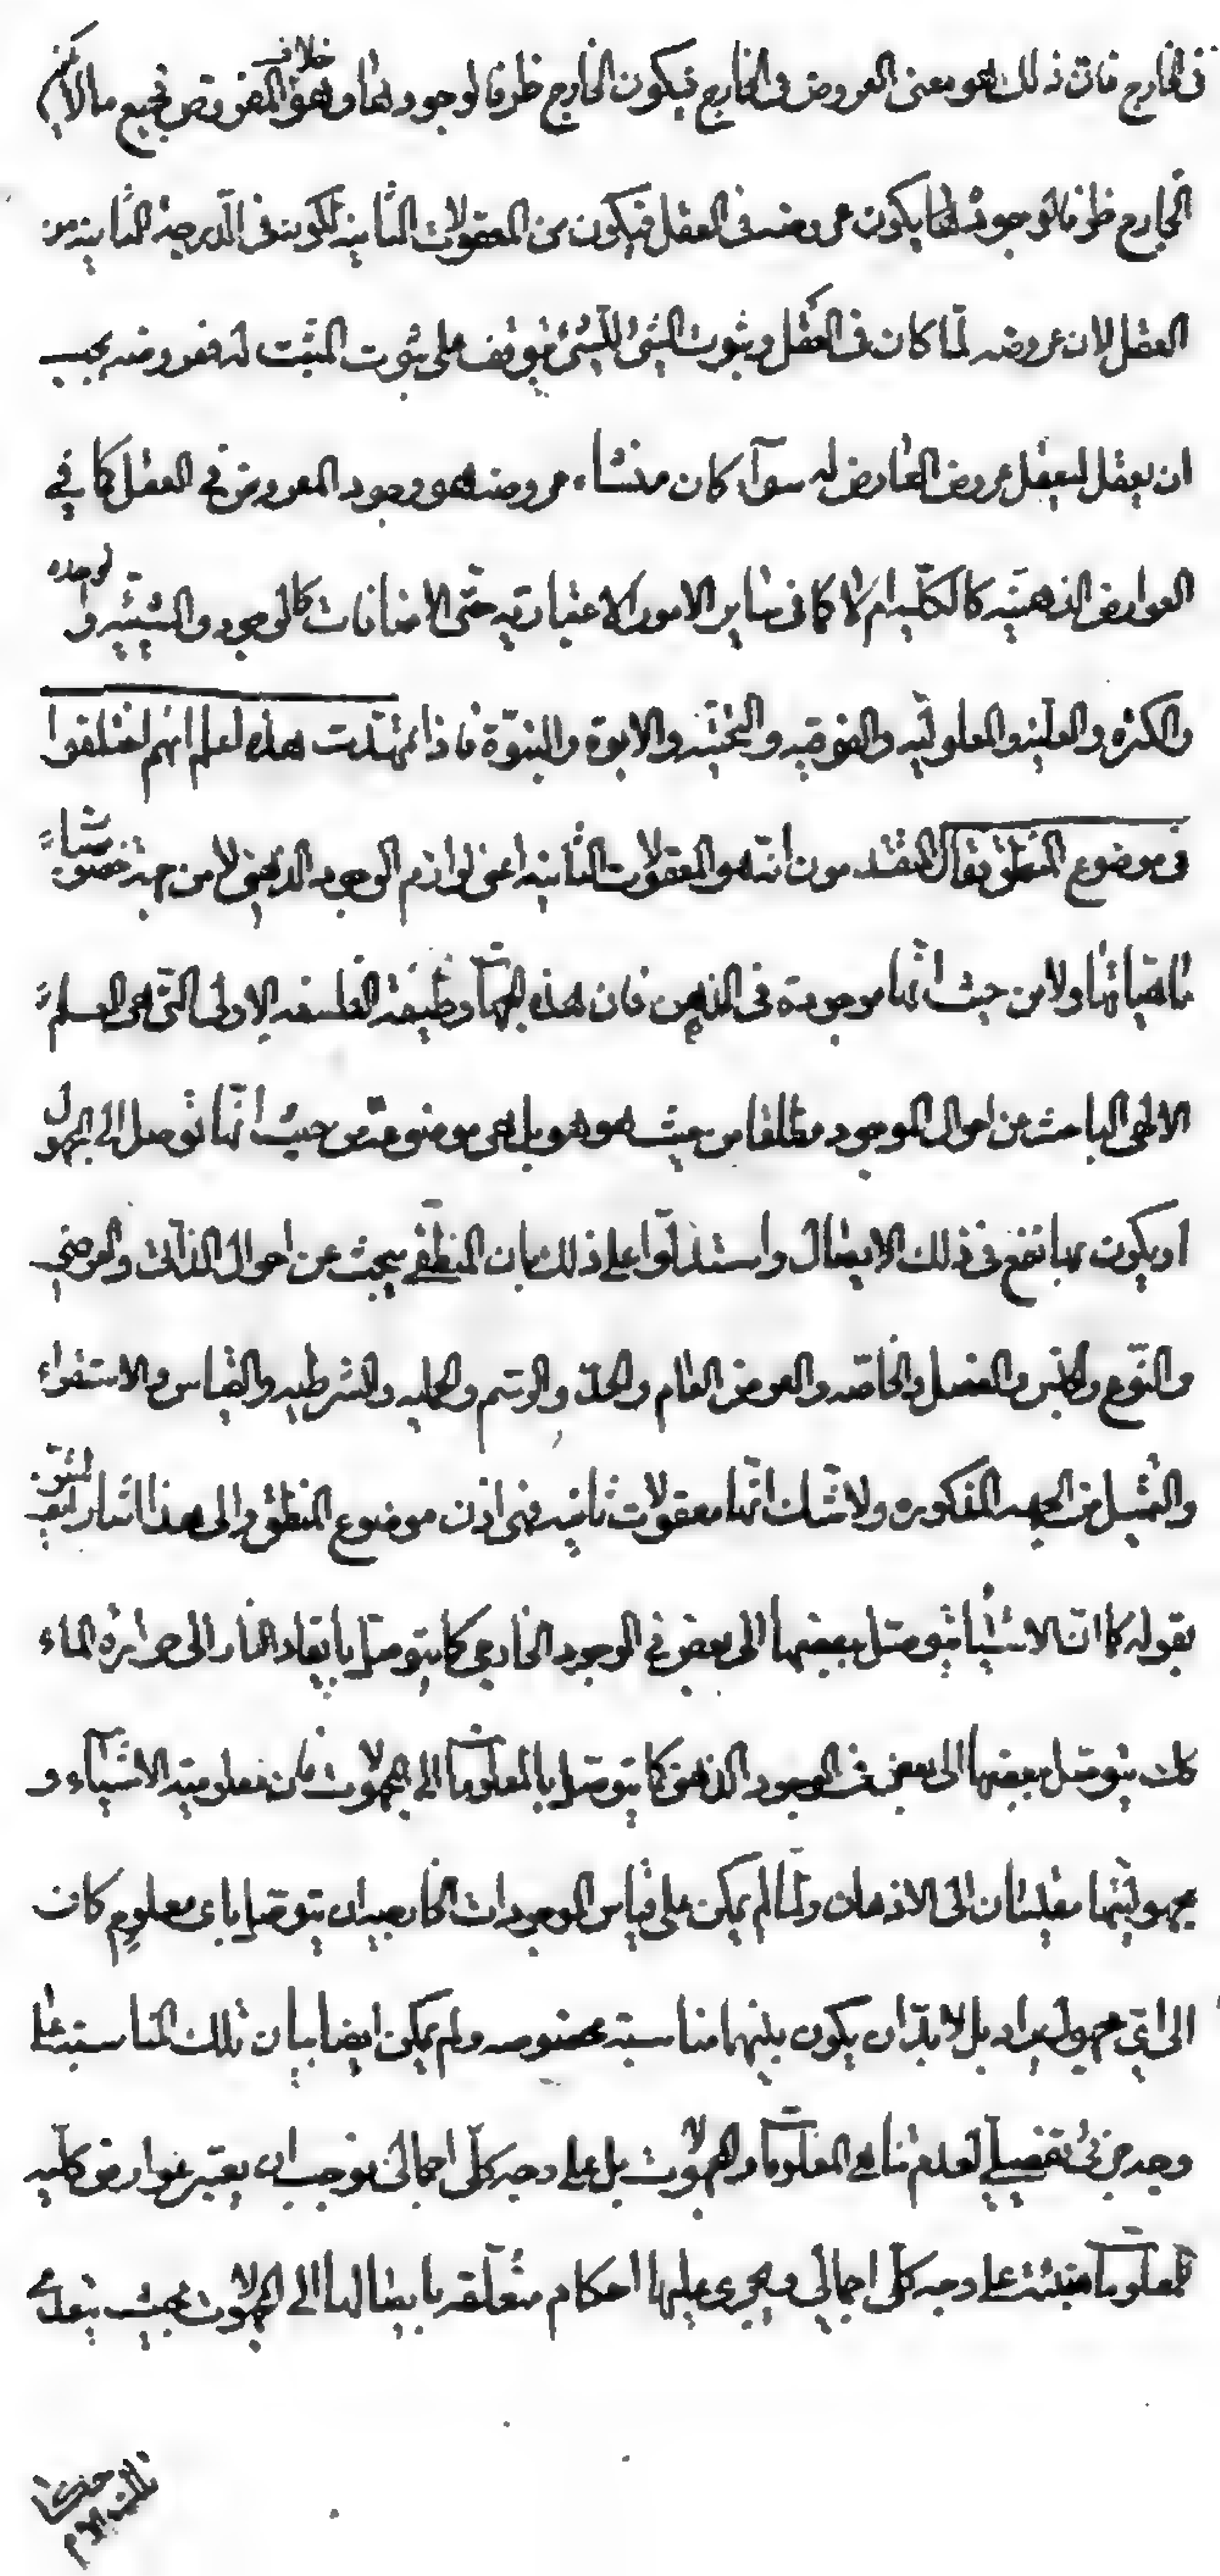 فى الخارج فان ذلك هو معنى العروض فى الخارج فيكون الخارج ظرفا لوجودها وهو خلاف المفروض فجميع ما لا يكن
الخارج ظرفا لوجودها يكون عروضه فى العقل فيكون من المعقولات الثانية لكونه فى الدرجة الثانية من
العقل لان عروضه لما كان فى العقل وثبوت الشئ للشئ يتوقف على ثبوت المثبت له فمعروضه يجب
ان يعقل ليعقل عروض العارض له سواء كان منشاء عروضه هو وجود المعروض فى العقل كما فى
العوارض الذهنيه كالكليه ام لا كما فى ساير الامور الاعتباريه حتى الاضافات كالوجود والشيئيه والوحده
والكثره والعليه والمعلوليه والفوقيه والتحتيه والابوة والبنوة فاذا تمهدت هذه لعلم انهم اختلفوا
فى موضوع المنطق فقال المتقدمون انه هو المعقولات الثانيه اعنى لوازم الوجود الذهنى لا من جهة خصوصيات
ماهياتها ولا من حيث انها موجودة فى الذهن فان هذه الجهات وظيفة الفلسفه الاولى التى هى العلم
الالهى الباحث عن احوال الموجود مطلقا من حيث هو هو بل هى موضوعة من حيث انها توصل الى المجهول
او يكون بها نفع فى ذلك الايصال واستدلوا على ذلك بان المنطقى يبحث عن احوال الذاتى والعرضى
والنوع والجنس والفصل والخاصه والعرض العام والحد والرسم والحمليه والشرطيه والقياس والاستقراء
والتمثيل من الجهه المذكوره ولا شك انها معقولات ثانيه فهى اذن موضوع المنطق والى هذا اشار
بقوله كما ان الاشياء يتوصل ببعضها الى بعض فى الوجود الخارجى كما يتوصل بايقاد النار الى حرارة الماء
كك يتوصل ببعضها الى بعض فى الوجود الذهنى كما يتوصل بالمعلومات الى المجهولات فان معلومية الاشياء و
مجهوليتها مقيستان الى الاذهان ولما لم يمكن على قياس الموجودات الخارجيه ان يتوصل باى معلوم كان
الى اى مجهول يراد بل لا بد ان يكون بينهما مناسبة مخصوصه ولم يمكن ايضا بيان تلك المناسبة على
وجه جزئى تفصيلى لعدم تناهى المعلومات والمجهولات بل على وجه كلى اجمالى فوجب ان يعتبر عوارض كليه
للمعلومات على وجه كلى اجمالى ويجرى عليها احكام متعلقه بايصالها الى المجهولات بحيث يتعدى